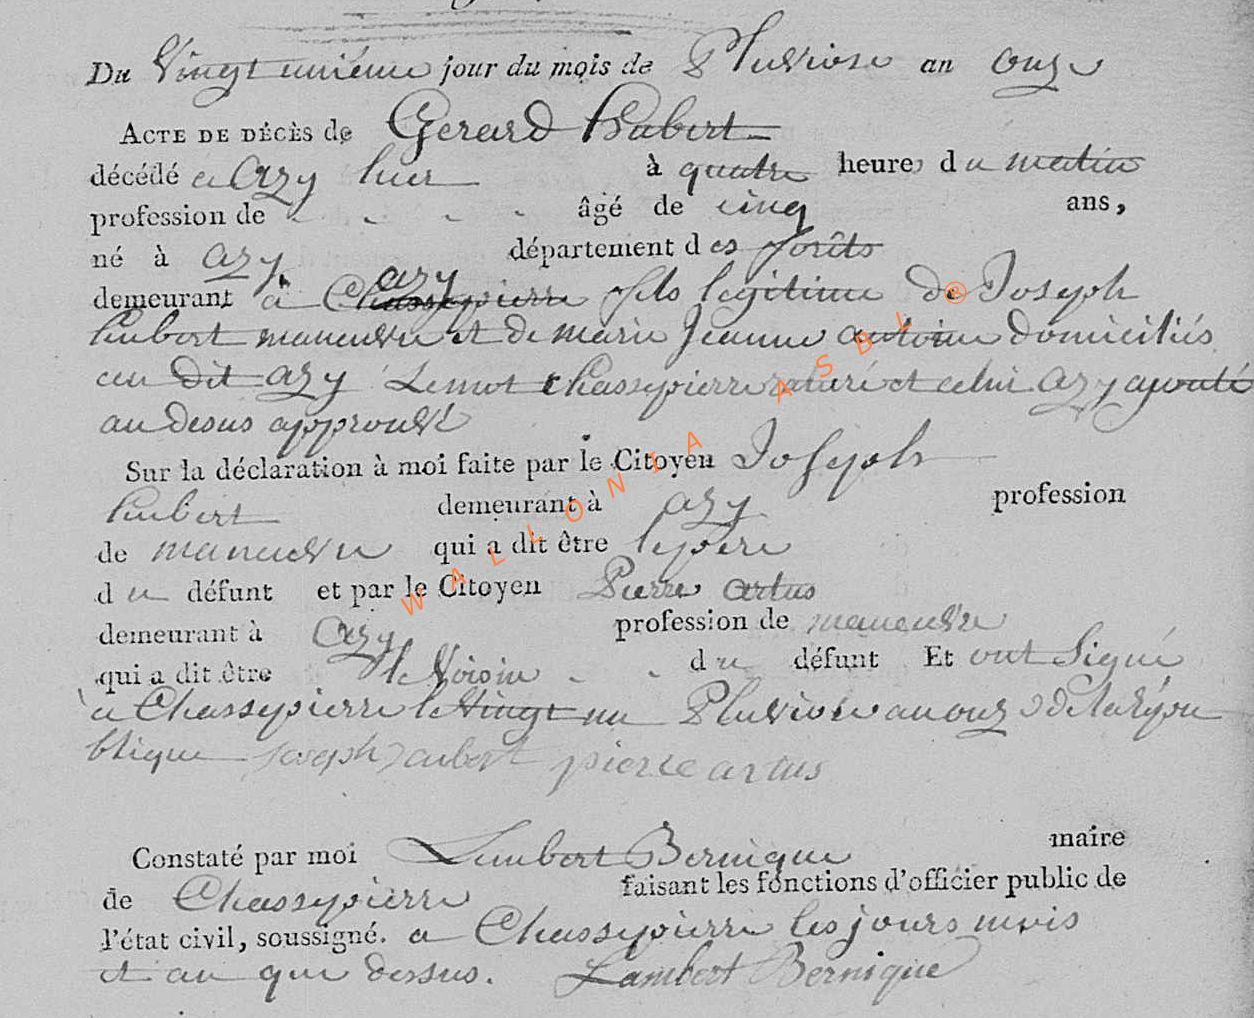 Du Vingt unième jour du mois de Pluviose an onze
ACTE DE DÉCÈS de Gerard hubert
décédé a azy hier à quatre heure du matin
profession de - - - - âgé de cinq ans,
né à azy département des forêts
azy
demeurant à Chassepierre fils legitime de Joseph
hubert maneuvre et de marie Jeanne antoine domiciliés
au dit azy Le mot Chassepierre raturé et celui azy ajouté
au desus approuvé
Sur la déclaration à moi faite par le Citoyen Joseph
hubert demeurant à azy profession
de maneuvre qui a dit être le père
du défunt et par le Citoyen Pierre artus
demeurant à azy profession de maneuvre
qui a dit être le Voisin - - du défunt Et ont Signé
à Chassepierre le Vingt un Pluviose an onze de la répu
blique joseph hubert pierre artus
Constaté par moi Lambert Bernique maire
de Chassepierre faisant les fonctions d'officier public de
l'état civil, soussigné. a Chassepierre les jours mois
et an que dessus. Lambert Bernique
WALLONIA ASBL ®